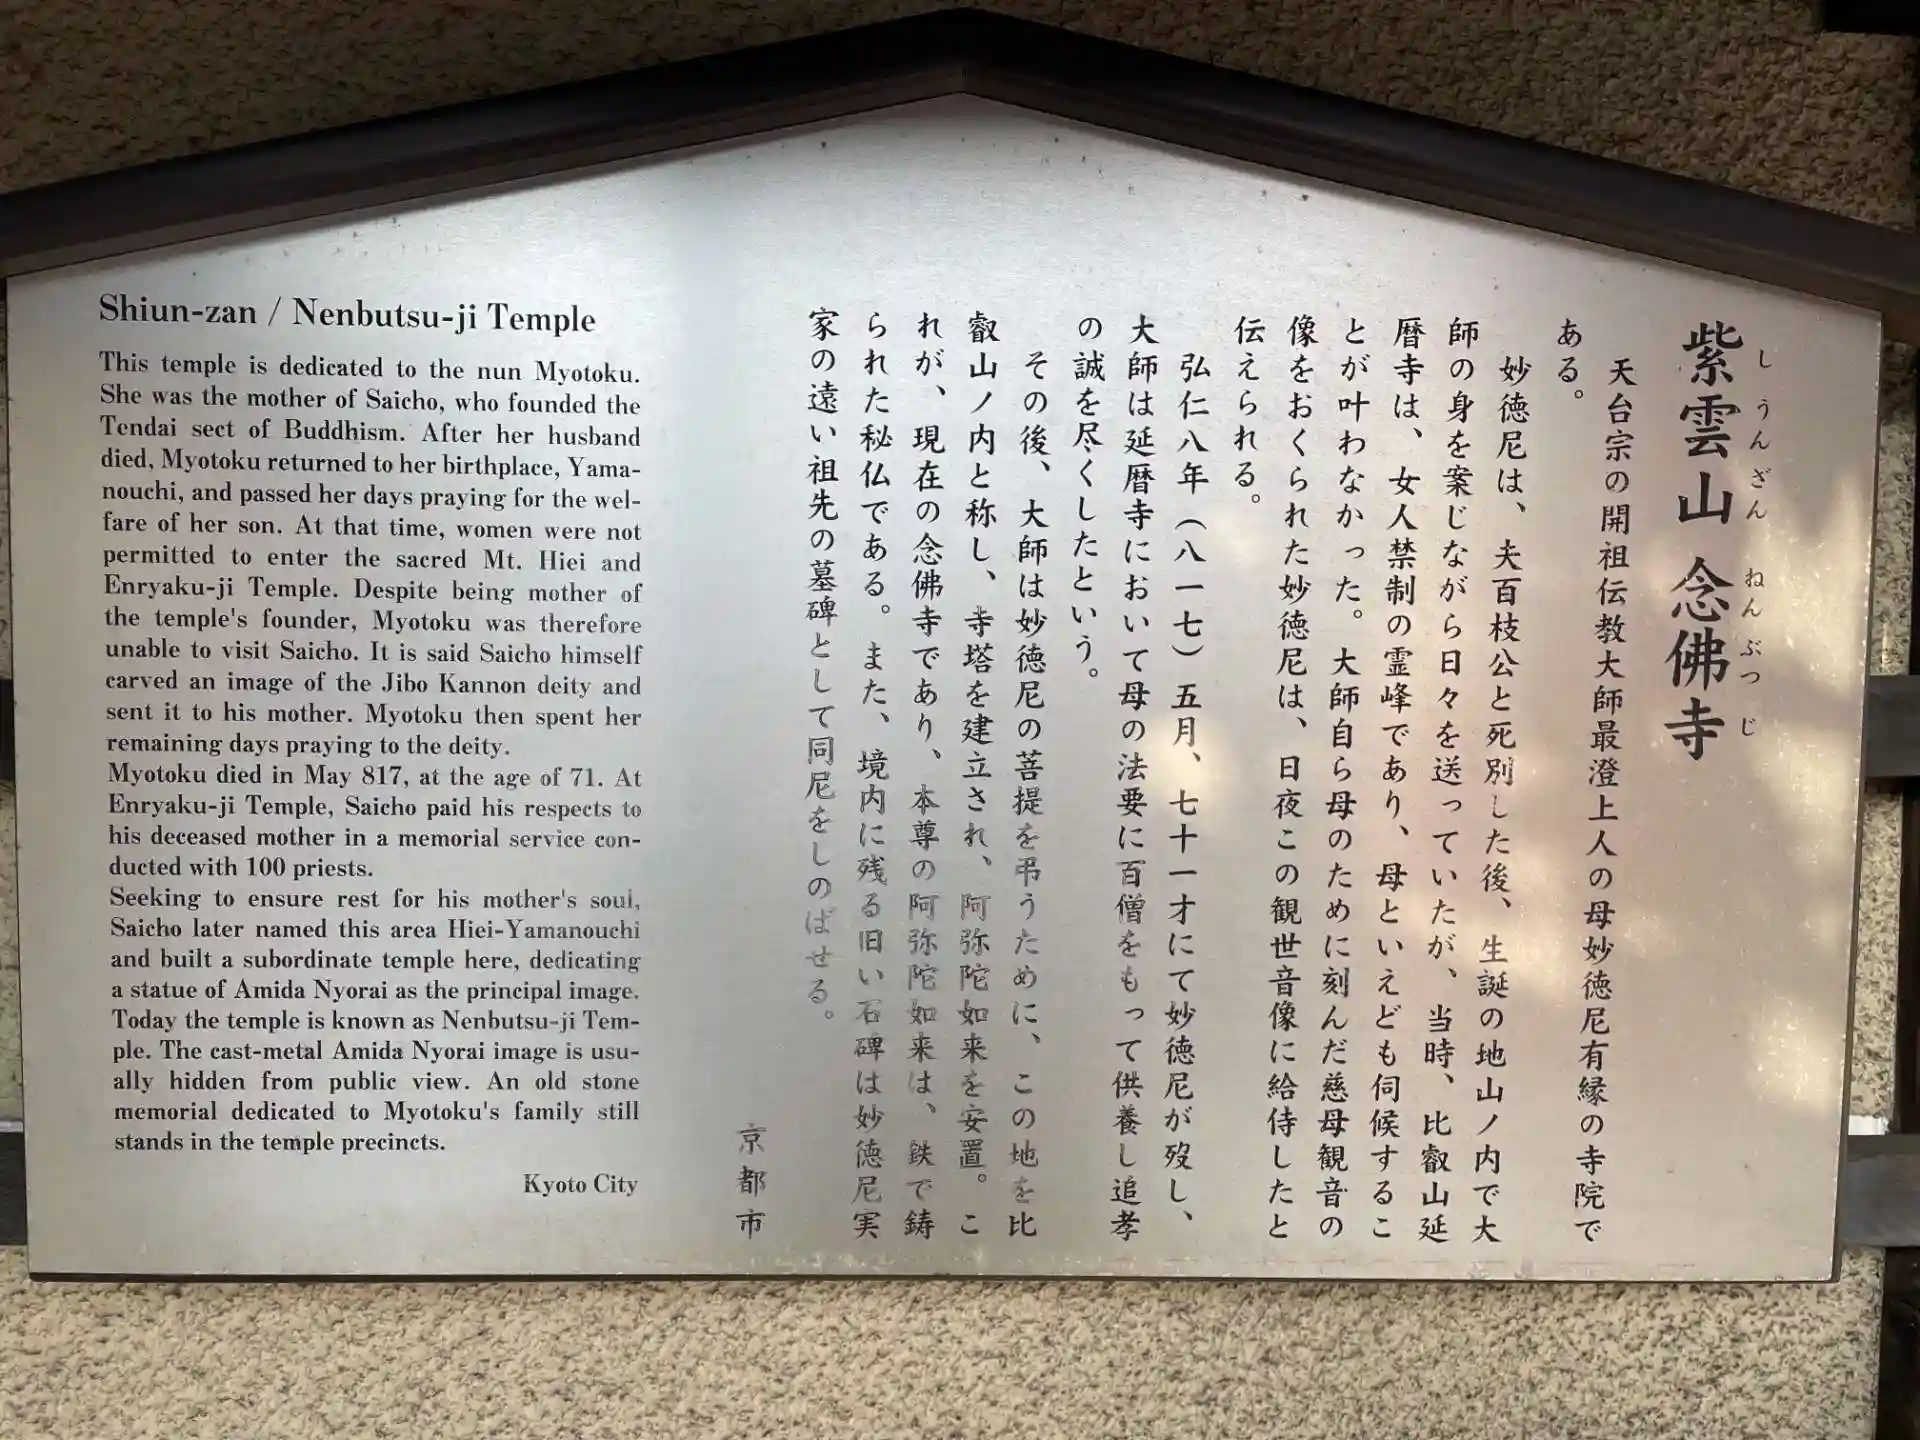 Shiun-zan / Nenbutsu-ji Temple
This temple is dedicated to the nun Myotoku.
She was the mother of Saicho, who founded the
Tendai sect of Buddhism. After her husband
died, Myotoku returned to her birthplace, Yama-
nouchi, and passed her days praying for the wel-
fare of her son. At that time, women were not
permitted to enter the sacred Mt. Hiei and
Enryaku-ji Temple. Despite being mother of
the temple's founder, Myotoku was therefore
unable to visit Saicho. It is said Saicho himself
carved an image of the Jibo Kannon deity and
sent it to his mother. Myotoku then spent her
remaining days praying to the deity.
Myotoku died in May 817, at the age of 71. At
Enryaku-ji Temple, Saicho paid his respects to
his deceased mother in a memorial service con-
ducted with 100 priests.
Seeking to ensure rest for his mother's soul,
Saicho later named this area Hiei-Yamanouchi
and built a subordinate temple here, dedicating
a statue of Amida Nyorai as the principal image.
Today the temple is known as Nenbutsu-ji Tem-
ple. The cast-metal Amida Nyorai image is usu-
ally hidden from public view. An old stone
memorial dedicated to Myotoku's family still
stands in the temple precincts.
Kyoto City
しうんざん ねんぶつじ
紫雲山 念佛寺
天台宗の開祖伝教大師最澄上人の母妙徳尼有縁の寺院で
ある。
妙徳尼は、夫百枝公と死別した後、生誕の地山ノ内で大
師の身を案じながら日々を送っていたが、当時、比叡山延
暦寺は、女人禁制の霊峰であり、母といえども伺候するこ
とが叶わなかった。大師自ら母のために刻んだ慈母観音の
像をおくられた妙徳尼は、日夜この観世音像に給侍したと
伝えられる。
弘仁八年（八一七）五月、七十一才にて妙徳尼が歿し、
大師は延暦寺において母の法要に百僧をもって供養し追孝
の誠を尽くしたという。
その後、大師は妙徳尼の菩提を弔うために、この地を比
叡山ノ内と称し、寺塔を建立され、阿弥陀如来を安置。こ
れが、現在の念佛寺であり、本尊の阿弥陀如来は、鉄で鋳
られた秘仏である。また、境内に残る旧い石碑は妙徳尼実
家の遠い祖先の墓碑として同尼をしのばせる。
京都市